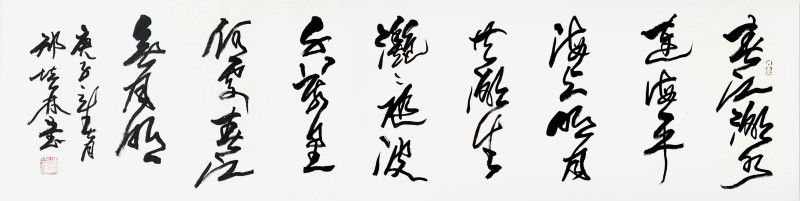 春江潮水
連海平
海上明月
共潮生
灩〻隨波
千萬里
何處春江
無月明
庚子五月
書